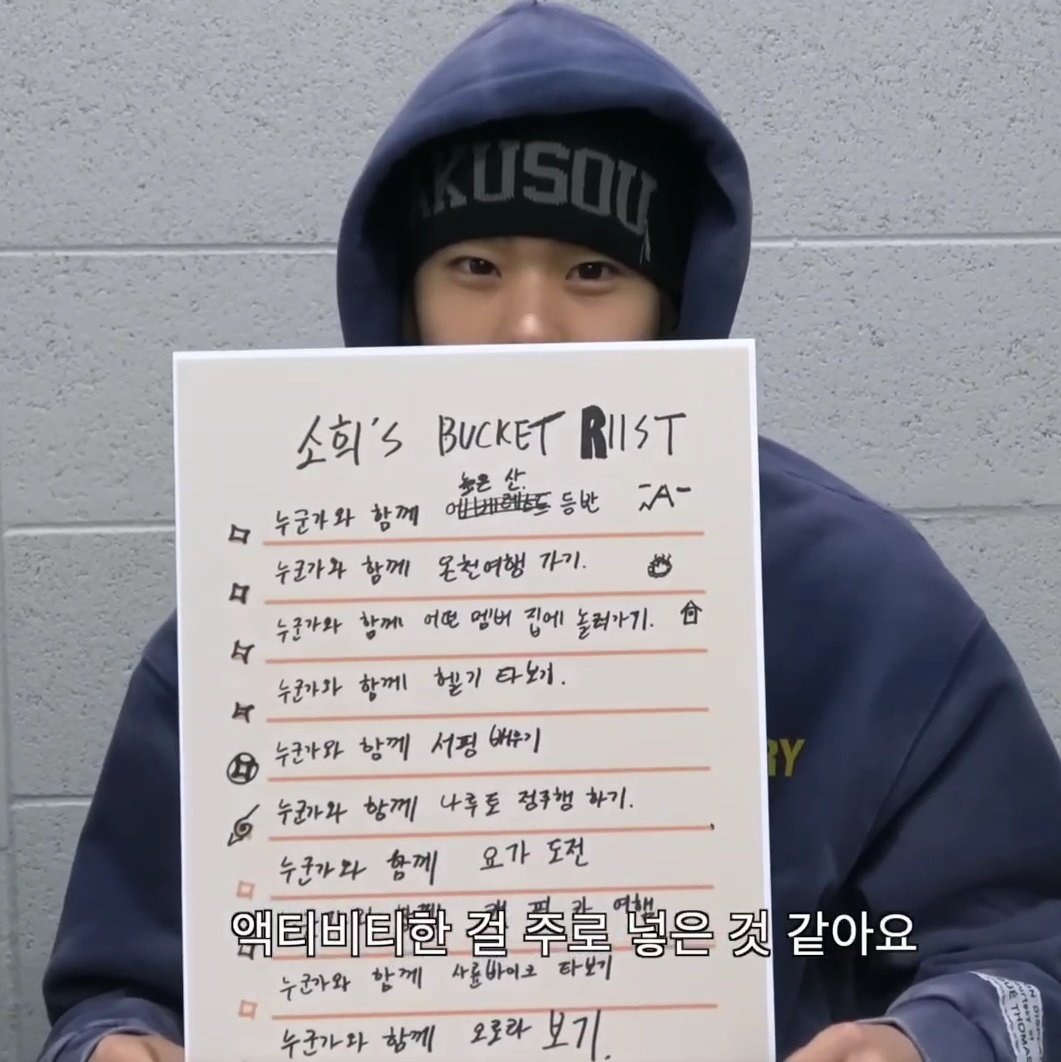 AKUSOU
소희's BUCKET RIIST
높은 산.
누군가와 함께 에베레스트 등반
누군가와 함께 온천여행 가기.
누군가와 함께 어떤 멤버 집에 놀러가기.
누군가와 함께 헬기 타보기.
누군가와 함께 서핑 배우기
누군가와 함께 나루토 정주행 하기.
RY
누군가와 함께 요가 도전
캠핑카 여행
액티비티한 걸 주로 넣은 것 같아요
누군가와 함께 사륜바이크 타보기
누군가와 함께 오로라 보기.